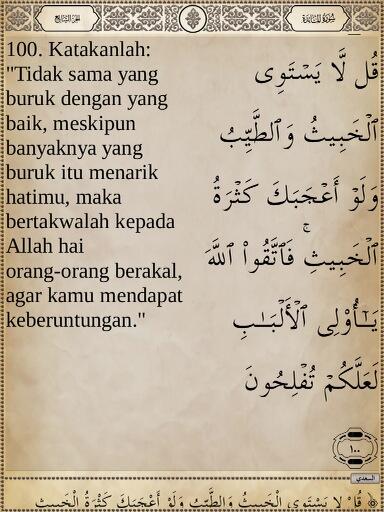 الجزء السابع
سورة المائدة
100. Katakanlah:
"Tidak sama yang
buruk dengan yang
baik, meskipun
banyaknya yang
buruk itu menarik
hatimu, maka
bertakwalah kepada
Allah hai
orang-orang berakal,
agar kamu mendapat
keberuntungan."
قُل لَّا يَسْتَوِى
ٱلْخَبِيثُ وَٱلطَّيِّبُ
وَلَوْ أَعْجَبَكَ كَثْرَةُ
ٱلْخَبِيثِ ۚ فَٱتَّقُوا۟ ٱللَّهَ
يَـٰٓأُو۟لِى ٱلْأَلْبَـٰبِ
لَعَلَّكُمْ تُفْلِحُونَ
١٠٠
السعدي
قُل لَّا يَسْتَوِى الْخَبِيثُ وَالطَّيِّبُ وَلَوْ أَعْجَبَكَ كَثْرَةُ الْخَبِيثِ